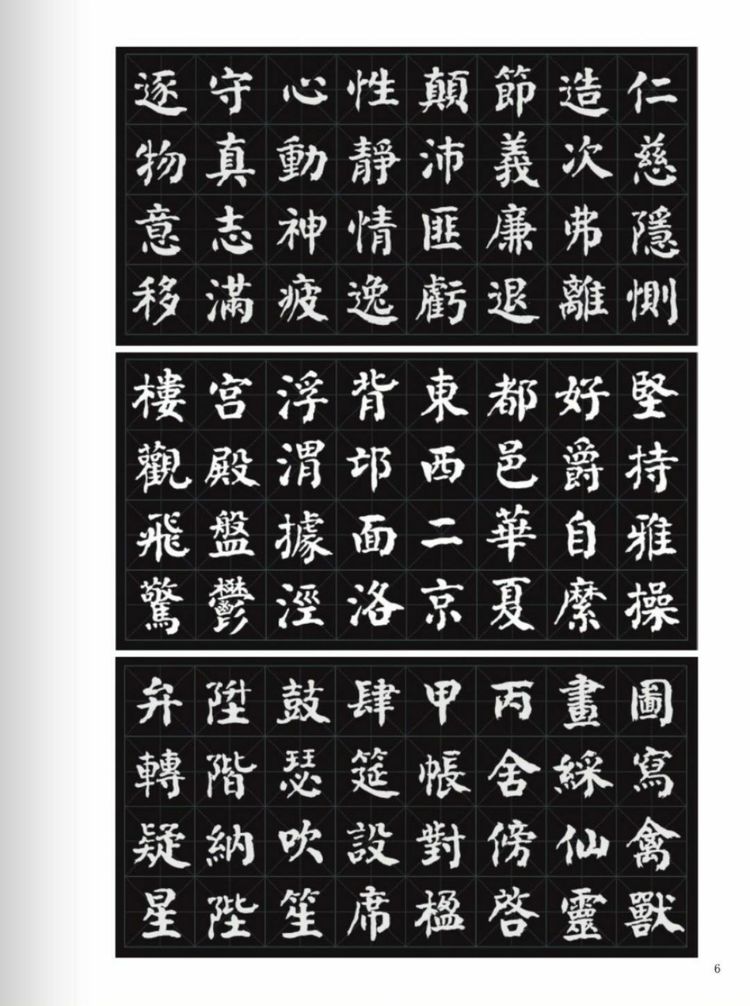 仁慈隱惻
造次弗離
節義廉退
顛沛匪虧
性靜情逸
心動神疲
守真志滿
逐物意移
堅持雅操
好爵自縻
都邑華夏
東西二京
背邙面洛
浮渭據涇
宮殿盤鬱
樓觀飛驚
圖寫禽獸
畫綵仙靈
丙舍傍啓
甲帳對楹
肆筵設席
鼓瑟吹笙
陞階納陛
弁轉疑星
6